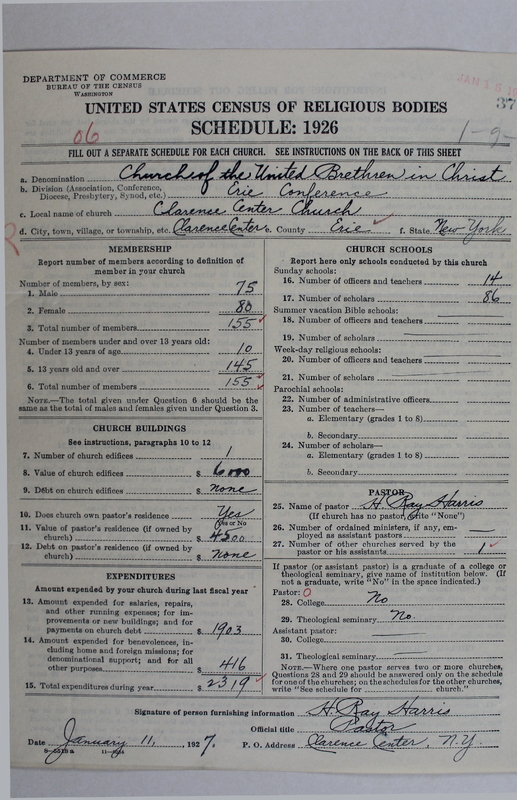 DEPARTMENT OF COMMERCE
BUREAU OF THE CENSUS
WASHINGTON
JAN 15
37
UNITED STATES CENSUS OF RELIGIOUS BODIES
SCHEDULE: 1926
06
1-9-
FILL OUT A SEPARATE SCHEDULE FOR EACH CHURCH. SEE INSTRUCTIONS ON THE BACK OF THIS SHEET
a. Denomination Church of the United Brethren in Christ
b. Division (Association, Conference, Diocese, Presbytery, Synod, etc.) Erie Conference
c. Local name of church Clarence Center Church
d. City, town, village, or township, etc. Clarence Center e. County Erie f. State New York
MEMBERSHIP
Report number of members according to definition of
member in your church
Number of members, by sex:
1. Male 75
2. Female 80
3. Total number of members 155
Number of members under and over 13 years old:
4. Under 13 years of age 10
5. 13 years old and over 145
6. Total number of members 155
NOTE.—The total given under Question 6 should be
same as the total of males and females given under Question 3.
CHURCH BUILDINGS
See instructions, paragraphs 10 to 12
7. Number of church edifices 1
8. Value of church edifices $ 6000
9. Debt on church edifices $ none
10. Does church own pastor's residence? Yes
Yes or No
11. Value of pastor's residence (if owned by
church) $ 4500
12. Debt on pastor's residence (if owned by
church) $ none
EXPENDITURES
Amount expended by your church during last fiscal year
13. Amount expended for salaries, repairs,
and other running expenses; for im-
provements or new buildings; and for
payments on church debt $ 1903
14. Amount expended for benevolences, in-
cluding home and foreign missions; for
denominational support; and for all
other purposes $ 416
15. Total expenditures during year $ 2319
CHURCH SCHOOLS
Report here only schools conducted by this church
Sunday schools:
16. Number of officers and teachers 14
17. Number of scholars 86
Summer vacation Bible schools:
18. Number of officers and teachers
19. Number of scholars
Week-day religious schools:
20. Number of officers and teachers
21. Number of scholars
Parochial schools:
22. Number of administrative officers
23. Number of teachers—
a. Elementary (grades 1 to 8)
b. Secondary
24. Number of scholars—
a. Elementary (grades 1 to 8)
b. Secondary
PASTOR
25. Name of pastor H. Ray Harris
(If church has no pastor, write "None")
26. Number of ordained ministers, if any, em-
ployed as assistant pastors
27. Number of other churches served by the
pastor or his assistants 1
If pastor (or assistant pastor) is a graduate of a college or
theological seminary, give name of institution below. (If
not a graduate, write "No" in the space indicated.)
Pastor: 0
28. College No
29. Theological seminary No.
Assistant pastor:
30. College
31. Theological seminary
NOTE.—Where one pastor serves two or more churches,
Questions 28 and 29 should be answered only on the schedule
for one of the churches; on the schedules for the other churches,
write "See schedule for church."
Signature of person furnishing information H. Ray Harris
Official title Pastor
Date January 11, 1927. P. O. Address Clarence Center, N.Y.